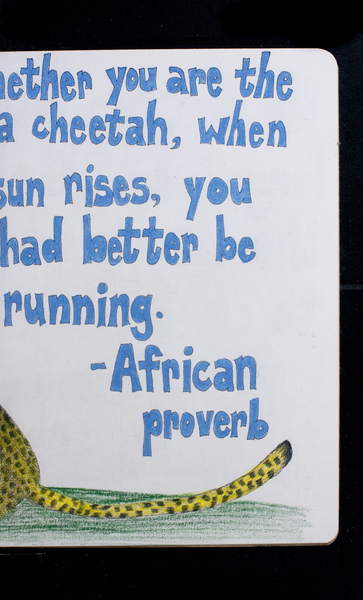 hether you are the
a cheetah, when
sun rises, you
had better be
running.
-African
proverb